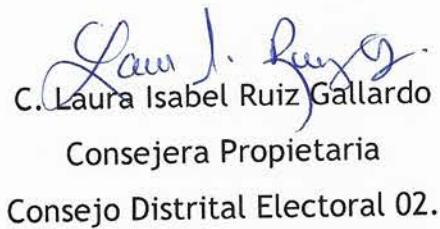 Laura I. Ruiz G.
C. Laura Isabel Ruiz Gallardo
Consejera Propietaria
Consejo Distrital Electoral 02.